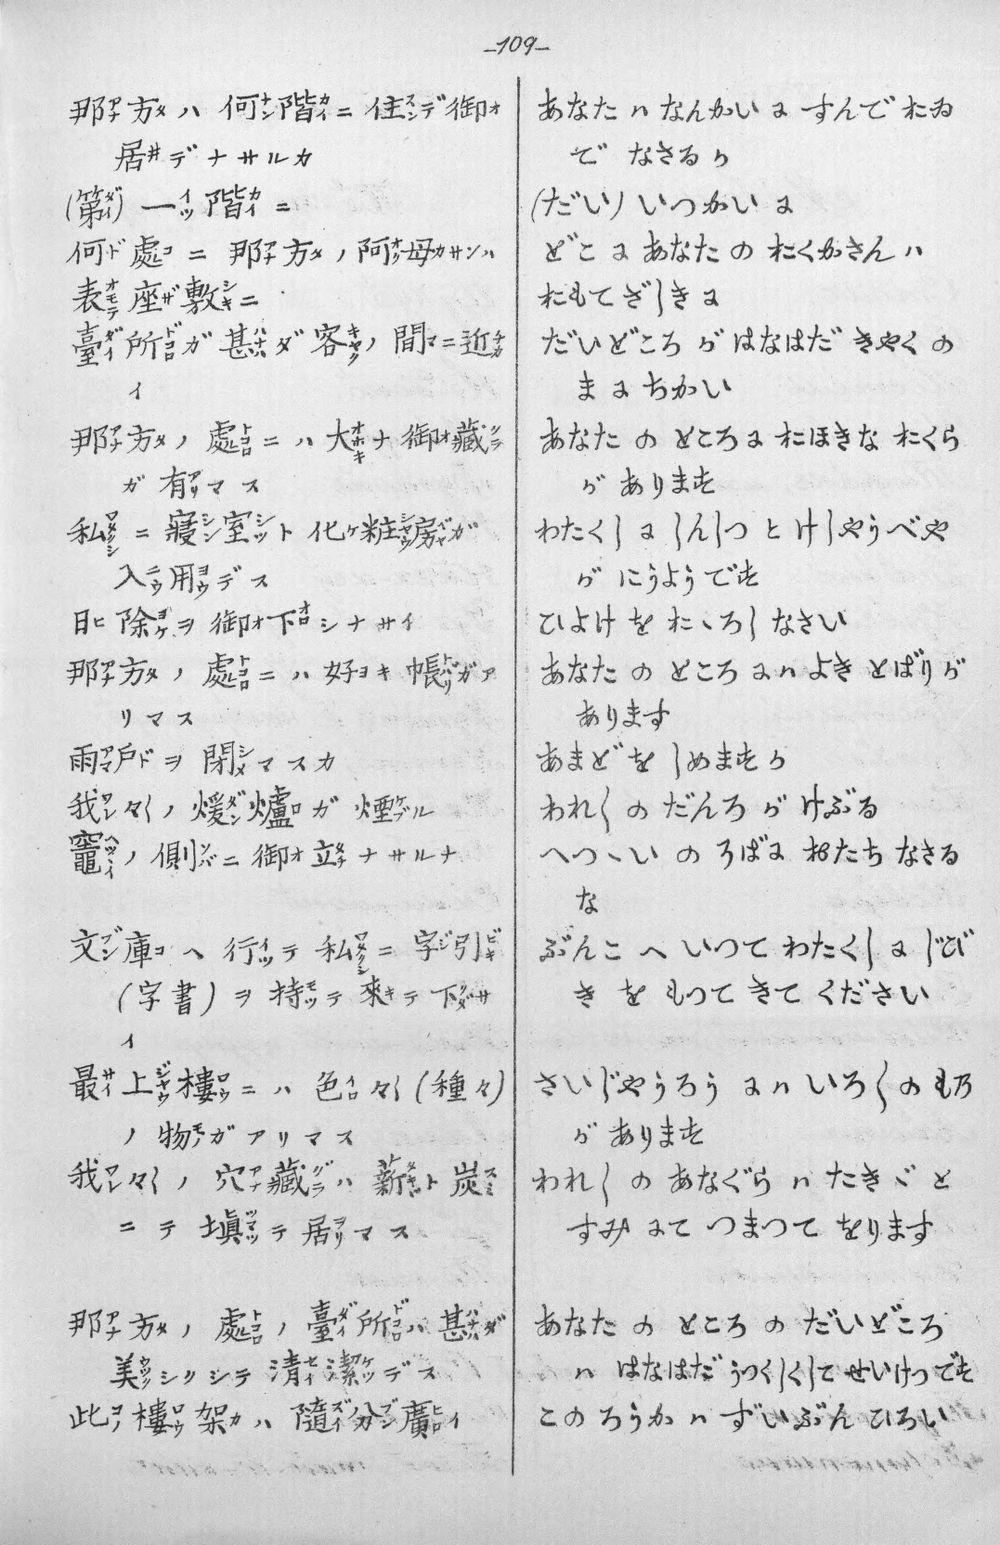 -109-
那方ハ何階ニ住デ御
居デナサルカ
(第)一階ニ
何處ニ那方ノ阿母サンハ
表座敷ニ
臺所ガ甚ダ客ノ間ニ近
イ
那方ノ處ニハ大ナ御藏
ガ有マス
私ニ寢室ト化粧房ガ
入用デス
日除ヲ御下シナサイ
那方ノ處ニハ好キ帳ガア
リマス
雨戸ヲ閉マスカ
我々ノ煖爐ガ煙ル
竈ノ側ニ御立ナサルナ
文庫ヘ行テ私ニ字引
(字書)ヲ持テ來テ下サ
イ
最上樓ニハ色々(種々)
ノ物ガアリマス
我々ノ穴藏ハ薪ト炭
ニテ塡テ居マス
那方ノ處ノ臺所ハ甚ダ
美シクシテ清潔デス
此樓架ハ隨分廣イ
あなた ハ なんかい に すんで おゐ
で なさるか
(だい) いつかい に
どこ に あなた の おくかさん ハ
おもてざしき に
だいどころ が はなはだ きやく の
ま に ちかい
あなた の ところ に おほきな おくら
が あります
わたくし に しんしつ と けしやうべや
が にうようです
ひよけ を おゝろし なさい
あなた の ところ にハ よき とばり が
あります
あまど を しめますか
われ〱 の だんろ が けぶる
へつゝい の そば に おたち なさる
な
ぶんこ へ いつて わたくし に じび
き を もつて きて ください
さいじやうろう にハ いろ〱の もの
が あります
われ〱 の あなぐら ハ たきゞ と
すみ にて つまつて をります
あなた の ところ の だいどころ
ハ はなはだ うつくしくして せいけつです
この ろうか ハ ずいぶん ひろい